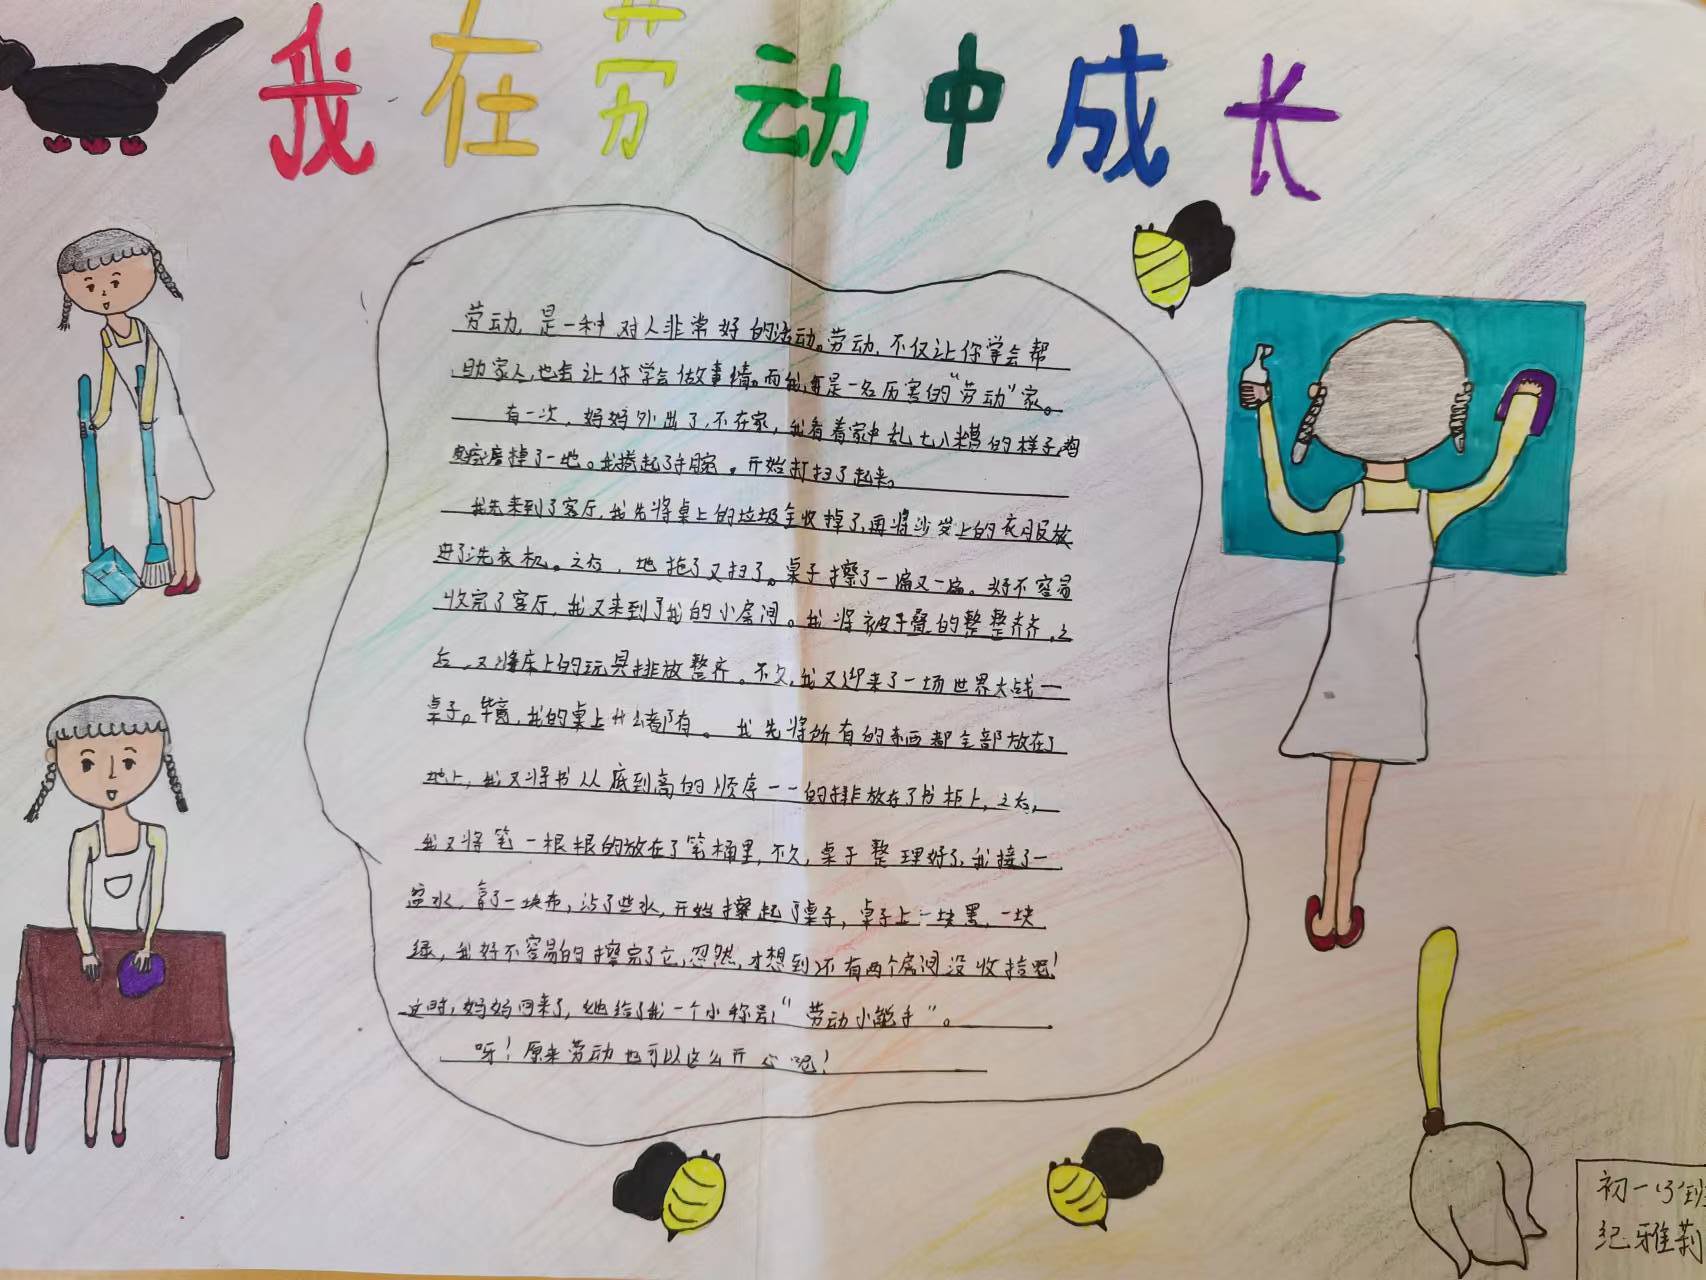 我在劳动中成长
劳动，是一种对人非常好的活动。劳动，不仅让你学会帮
助家人，也会让你学会做事情。而我，可是一名厉害的“劳动”家。
有一次，妈妈外出了，不在家，我看着家中乱七八糟的样子，鸡
皮疙瘩掉了一地。我捲起了手腕，开始打扫了起来。
我先来到了客厅，我先将桌上的垃圾全收掉了，再将沙发上的衣服放
进了洗衣机。之后，地拖了又扫了。桌子擦了一遍又一遍。好不容易
收完了客厅，我又来到了我的小房间。我将被子叠的整整齐齐，之
后，又将床上的玩具排放整齐。不久，我又迎来了一场世界大战一
桌子。毕竟，我的桌上什么都有。我先将所有的东西都全部放在了
地上，我又将书从底到高的顺序一一的排放在了书柜上，之后，
我又将笔一根根的放在了笔桶里，不久，桌子整理好了，我接了一
盆水，拿了一块布，沾了些水，开始擦起了桌子，桌子上一块黑，一块
绿，我好不容易的擦完了它，忽然，才想到还有两个房间没收拾呢！
这时，妈妈回来了，她给了我一个小称号“劳动小能手”。
呀！原来劳动也可以这么开心呢！
初一(3)班
纪雅莉